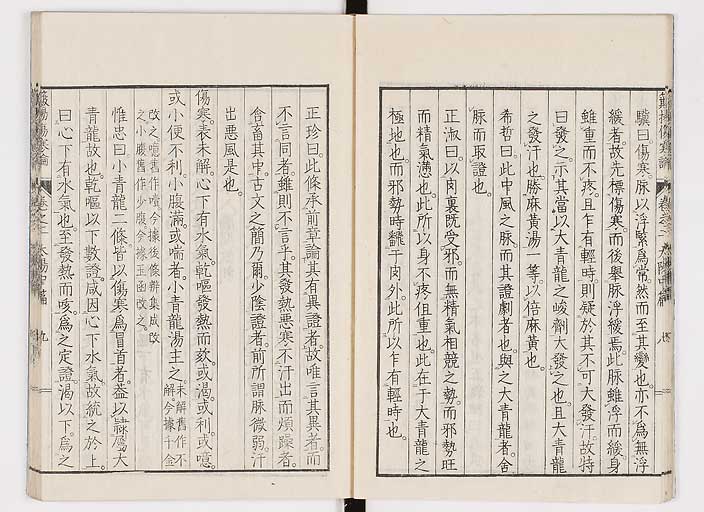 驥曰傷寒脉以浮緊爲常然而至其變也亦不爲無浮
緩者故先標傷寒而後舉脉浮緩焉此脉雖浮而緩身
雖重而不疼且乍有輕時則疑於其不可大發汗故特
曰發之示其當以大青龍之峻劑大發之也且大青龍
之發汗也勝麻黃湯一等以倍麻黃也
希哲曰此中風之脉而其證劇者也與之大青龍者舍
脉而取證也
正淑曰以肉裏既受邪而無精氣相競之勢而邪勢旺
而精氣憊也此所以身不疼但重也此在于大青龍之
極地也而邪勢時飜于肉外此所以乍有輕時也
正珍曰此條承前章論其有異證者故唯言其異者而
不言同者雖則不言乎其發熱惡寒不汗出而煩躁者
含畜其中古文之簡乃爾少陰證者前所謂脉微弱汗
出惡風是也
傷寒表未解心下有水氣乾嘔發熱而欬或渴或利或噫
或小便不利小腹滿或喘者小青龍湯主之未解舊作不
解今據千金
改之噫舊作噎今據後條辨集成改
之小腹舊作少腹今據玉函改之
惟忠曰小青龍二條皆以傷寒爲冒首者蓋以隸屬大
青龍故也乾嘔以下數證咸因心下水氣故統之於上
曰心下有水氣也至發熱而咳爲之定證渴以下爲之
卷之二 太陽中篇 九